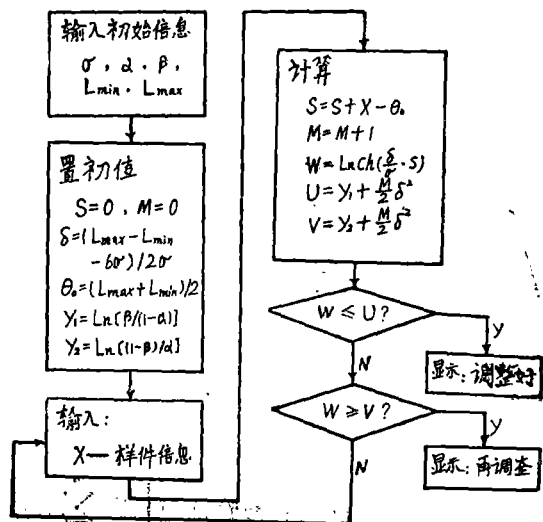 输入初始信息
σ , α . β ,
Lmin . Lmax
置初值
S=0 , M=0
δ=(Lmax-Lmin
-6σ)/2σ
θ₀=(Lmax+Lmin)/2
Y₁=Ln[β/(1-α)]
Y₂=Ln[(1-β)/α]
输入:
X— 样件信息
计算
S=S+X-θ₀
M=M+1
W=LnCh(δ/σ·S)
U=Y₁+M/2 δ²
V=Y₂+M/2 δ²
W ≤ U?
Y
显示:调整好
N
W ≥ V?
Y
显示:再调查
N